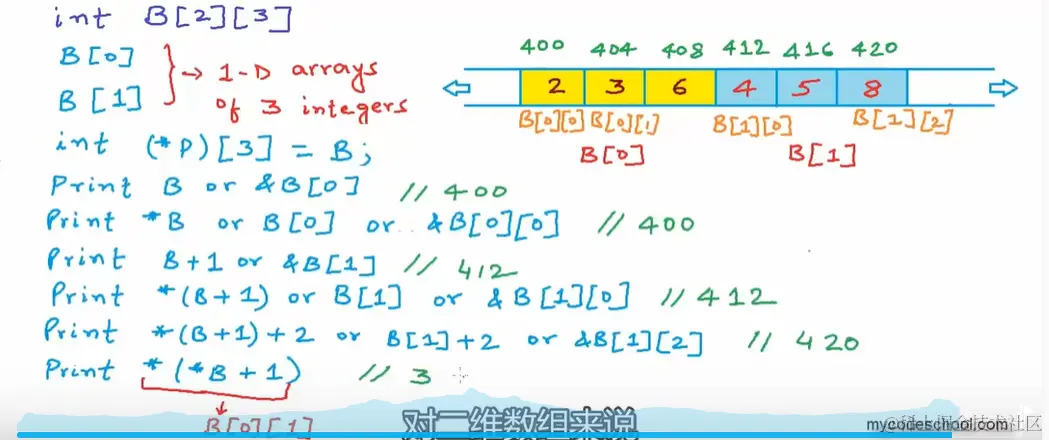 int B[2][3]
B[0]
B[1]
→ 1-D arrays
of 3 integers
400 404 408 412 416 420
2 3 6 4 5 8
B[0][0] B[0][1] B[1][0] B[1][2]
B[0] B[1]
int (*P)[3] = B;
Print B or &B[0] // 400
Print *B or B[0] or &B[0][0] // 400
Print B+1 or &B[1] // 412
Print *(B+1) or B[1] or &B[1][0] // 412
Print *(B+1)+2 or B[1]+2 or &B[1][2] // 420
Print *(*B+1) // 3
B[0][1]
对二维数组来说
mycodeschool.com